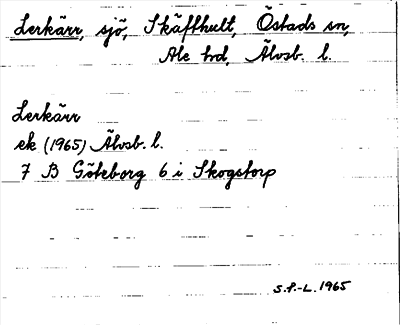 Lerkärr, sjö, Skäfthult, Östads sn,
Ale hd, Älvsb. l.
Lerkärr
ek (1965) Älvsb. l.
7 B Göteborg 6 i Skogstorp
S.P.-L. 1965